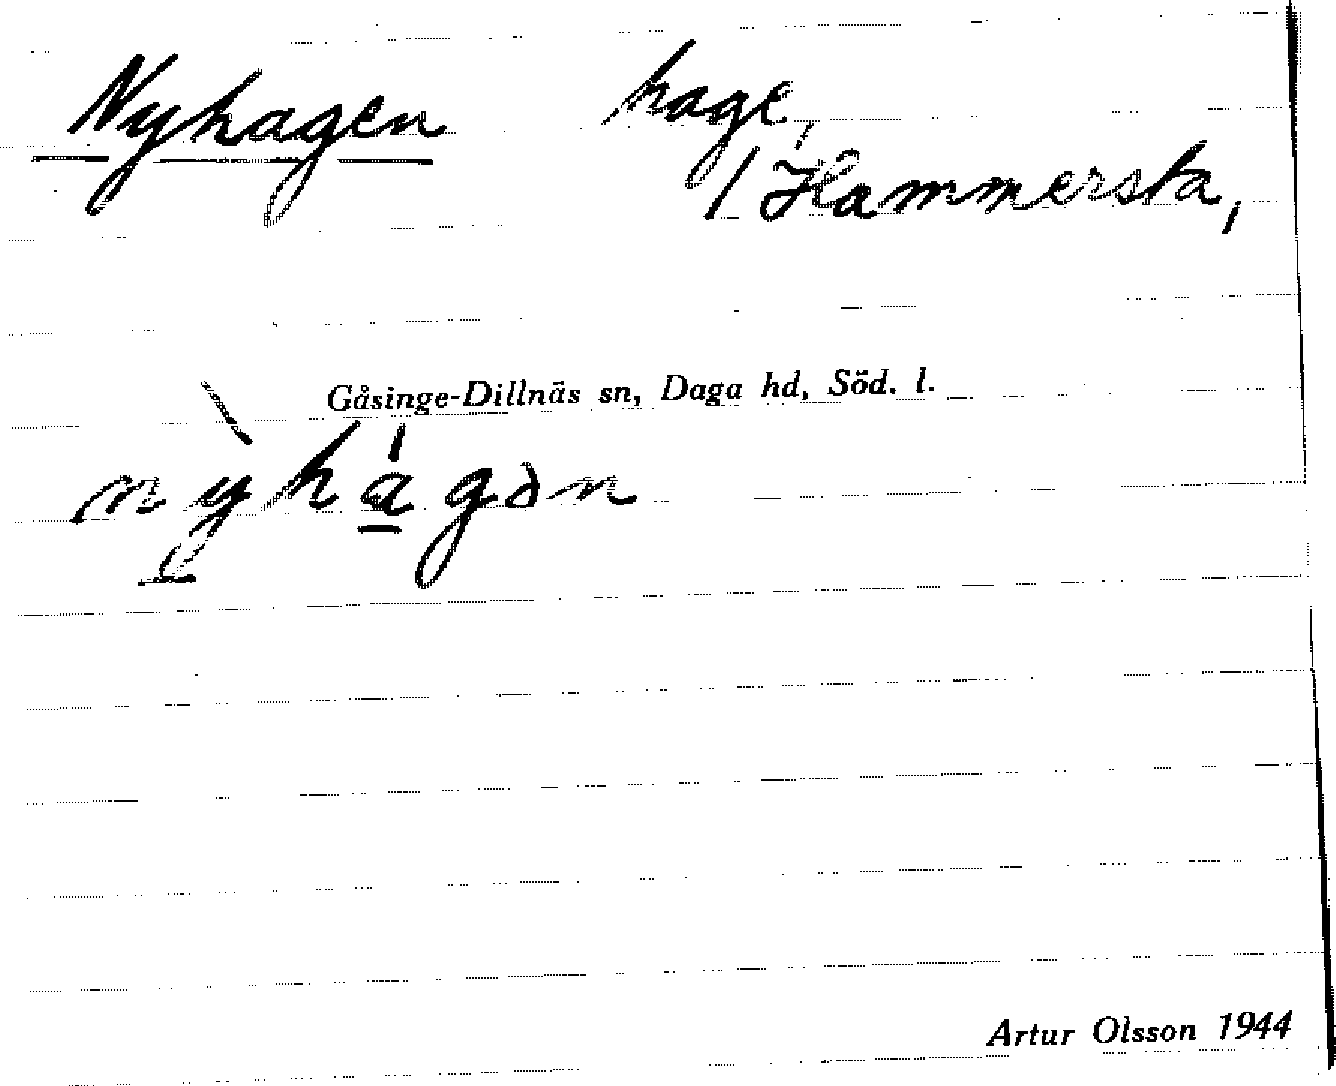 Nyhagen hage,
/ Hammersta,
Gåsinge-Dillnäs sn, Daga hd, Söd. l.
nỳhágən
Artur Olsson 1944